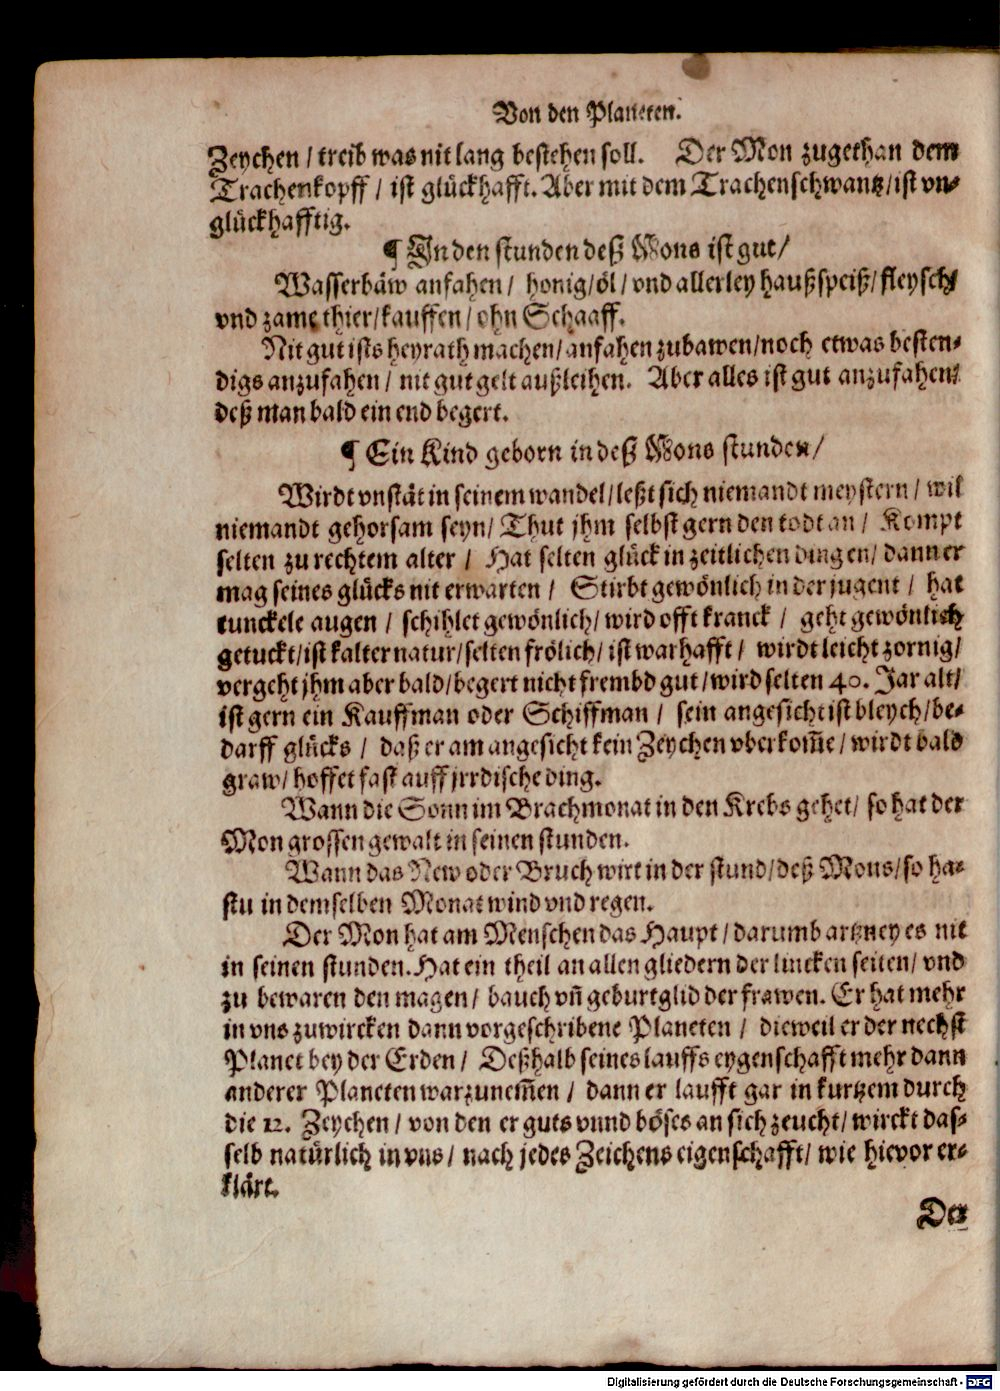 Von den Planeten.
Zeychen / treib was nit lang bestehen soll. Der Mon zugethan dem
Trachenkopff / ist glückhafft. Aber mit dem Trachenschwantz / ist vn-
glückhafftig.
¶ In den stunden deß Mons ist gut /
Wasserbäw anfahen / honig / öl / vnd allerley haußspeiß / fleysch /
vnd zame thier / kauffen / ohn Schaaff.
Nit gut ists heyrath machen / anfahen zubawen / noch etwas besten-
digs anzufahen / nit gut gelt außleihen. Aber alles ist gut anzufahen /
deß man bald ein end begert.
¶ Ein Kind geborn in deß Mons stunden /
Wirdt vnstät in seinem wandel / leßt sich niemandt meystern / wil
niemandt gehorsam seyn / Thut jhm selbst gern den todt an / Kompt
selten zu rechtem alter / Hat selten glück in zeitlichen dingen / dann er
mag seines glücks nit erwarten / Stirbt gewönlich in der jugent / hat
tunckele augen / schihlet gewönlich / wird offt kranck / geht gewönlich
getuckt / ist kalter natur / selten frölich / ist warhafft / wirdt leicht zornig /
vergeht jhm aber bald / begert nicht frembd gut / wird selten 40. Jar alt /
ist gern ein Kauffman oder Schiffman / sein angesicht ist bleych / be-
darff glücks / daß er am angesicht kein Zeychen vberkom̃e / wirdt bald
graw / hoffet fast auff jrrdische ding.
Wann die Sonn im Brachmonat in den Krebs gehet / so hat der
Mon grossen gewalt in seinen stunden.
Wann das New oder Bruch wirt in der stund / deß Mons / so ha-
stu in demselben Monat wind vnd regen.
Der Mon hat am Menschen das Haupt / darumb artzney es nit
in seinen stunden. Hat ein theil an allen gliedern der lincken seiten / vnd
zu bewaren den magen / bauch vñ geburtglid der frawen. Er hat mehr
in vns zuwircken dann vorgeschribene Planeten / dieweil er der nechst
Planet bey der Erden / Deßhalb seines lauffs eygenschafft mehr dann
anderer Planeten warzunem̃en / dann er laufft gar in kurtzem durch
die 12. Zeychen / von den er guts vnnd böses an sich zeucht / wirckt das-
selb natürlich in vns / nach jedes Zeichens eigenschafft / wie hievor er-
klärt.
Der
Digitalisierung gefördert durch die Deutsche Forschungsgemeinschaft - DFG